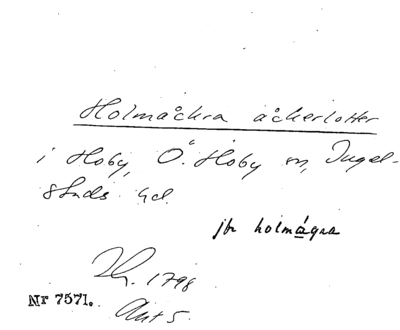 Holmåckra åckerlotter
i Hoby, Ö. Hoby sn, Ingel-
stads hd.
jfr holmágra
1798
Nr 7571.
Akt 5.